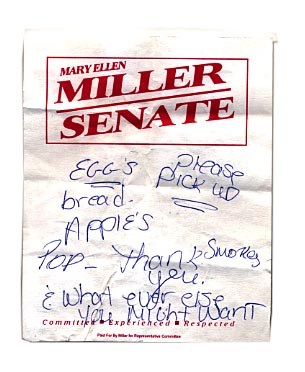 MARY ELLEN
MILLER
SENATE
EGG'S Please
PICK UP
bread.
APPLE'S
Pop - Thank Smokey
you.
& What ever else
you Might Want
Committed ■ Experienced ■ Respected
Paid For By Miller for Representative Committee